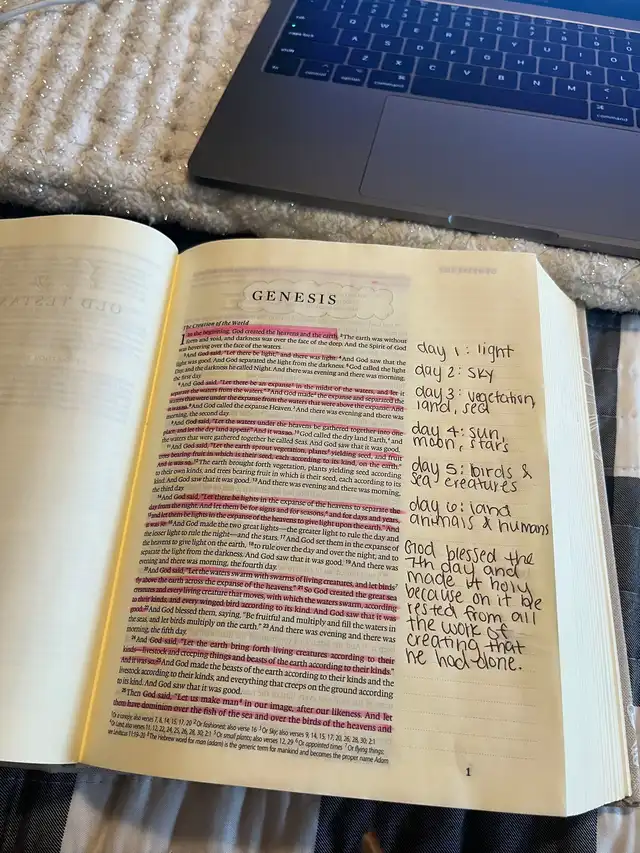 GENESIS
The Creation of the World
In the beginning, God created the heavens and the earth. 2 The earth was without
form and void, and darkness was over the face of the deep. And the Spirit of God
was hovering over the face of the waters.
3 And God said, "Let there be light," and there was light. 4 And God saw that the
light was good. And God separated the light from the darkness. 5 God called the light
Day, and the darkness he called Night. And there was evening and there was morning,
the first day.
6 And God said, "Let there be an expanse in the midst of the waters, and let it
separate the waters from the waters." 7 And God made the expanse and separated the
waters that were under the expanse from the waters that were above the expanse. And
it was so. 8 And God called the expanse Heaven. And there was evening and there was
morning, the second day.
9 And God said, "Let the waters under the heavens be gathered together into one
place, and let the dry land appear." And it was so. 10 God called the dry land Earth, and
the waters that were gathered together he called Seas. And God saw that it was good.
11 And God said, "Let the earth sprout vegetation, plants yielding seed, and fruit
trees bearing fruit in which is their seed, each according to its kind, on the earth."
And it was so. 12 The earth brought forth vegetation, plants yielding seed according
to their own kinds, and trees bearing fruit in which is their seed, each according to its
kind. And God saw that it was good. 13 And there was evening and there was morning,
the third day.
14 And God said, "Let there be lights in the expanse of the heavens to separate the
day from the night. And let them be for signs and for seasons, and for days and years,
15 and let them be lights in the expanse of the heavens to give light upon the earth." And
it was so. 16 And God made the two great lights—the greater light to rule the day and
the lesser light to rule the night—and the stars. 17 And God set them in the expanse of
the heavens to give light on the earth, 18 to rule over the day and over the night, and to
separate the light from the darkness. And God saw that it was good. 19 And there was
evening and there was morning, the fourth day.
20 And God said, "Let the waters swarm with swarms of living creatures, and let birds
fly above the earth across the expanse of the heavens." 21 So God created the great sea
creatures and every living creature that moves, with which the waters swarm, according
to their kinds, and every winged bird according to its kind. And God saw that it was
good. 22 And God blessed them, saying, "Be fruitful and multiply and fill the waters in
the seas, and let birds multiply on the earth." 23 And there was evening and there was
morning, the fifth day.
24 And God said, "Let the earth bring forth living creatures according to their
kinds—livestock and creeping things and beasts of the earth according to their kinds."
And it was so. 25 And God made the beasts of the earth according to their kinds and the
livestock according to their kinds, and everything that creeps on the ground according
to its kind. And God saw that it was good.
26 Then God said, "Let us make man in our image, after our likeness. And let
them have dominion over the fish of the sea and over the birds of the heavens and
1
day 1: light
day 2: sky
day 3: vegetation,
land, sea
day 4: sun,
moon, stars
day 5: birds &
sea creatures
day 6: land
animals & humans
God blessed the
7th day and
made it holy
because on it he
rested from all
the work of
creating that
he had done.